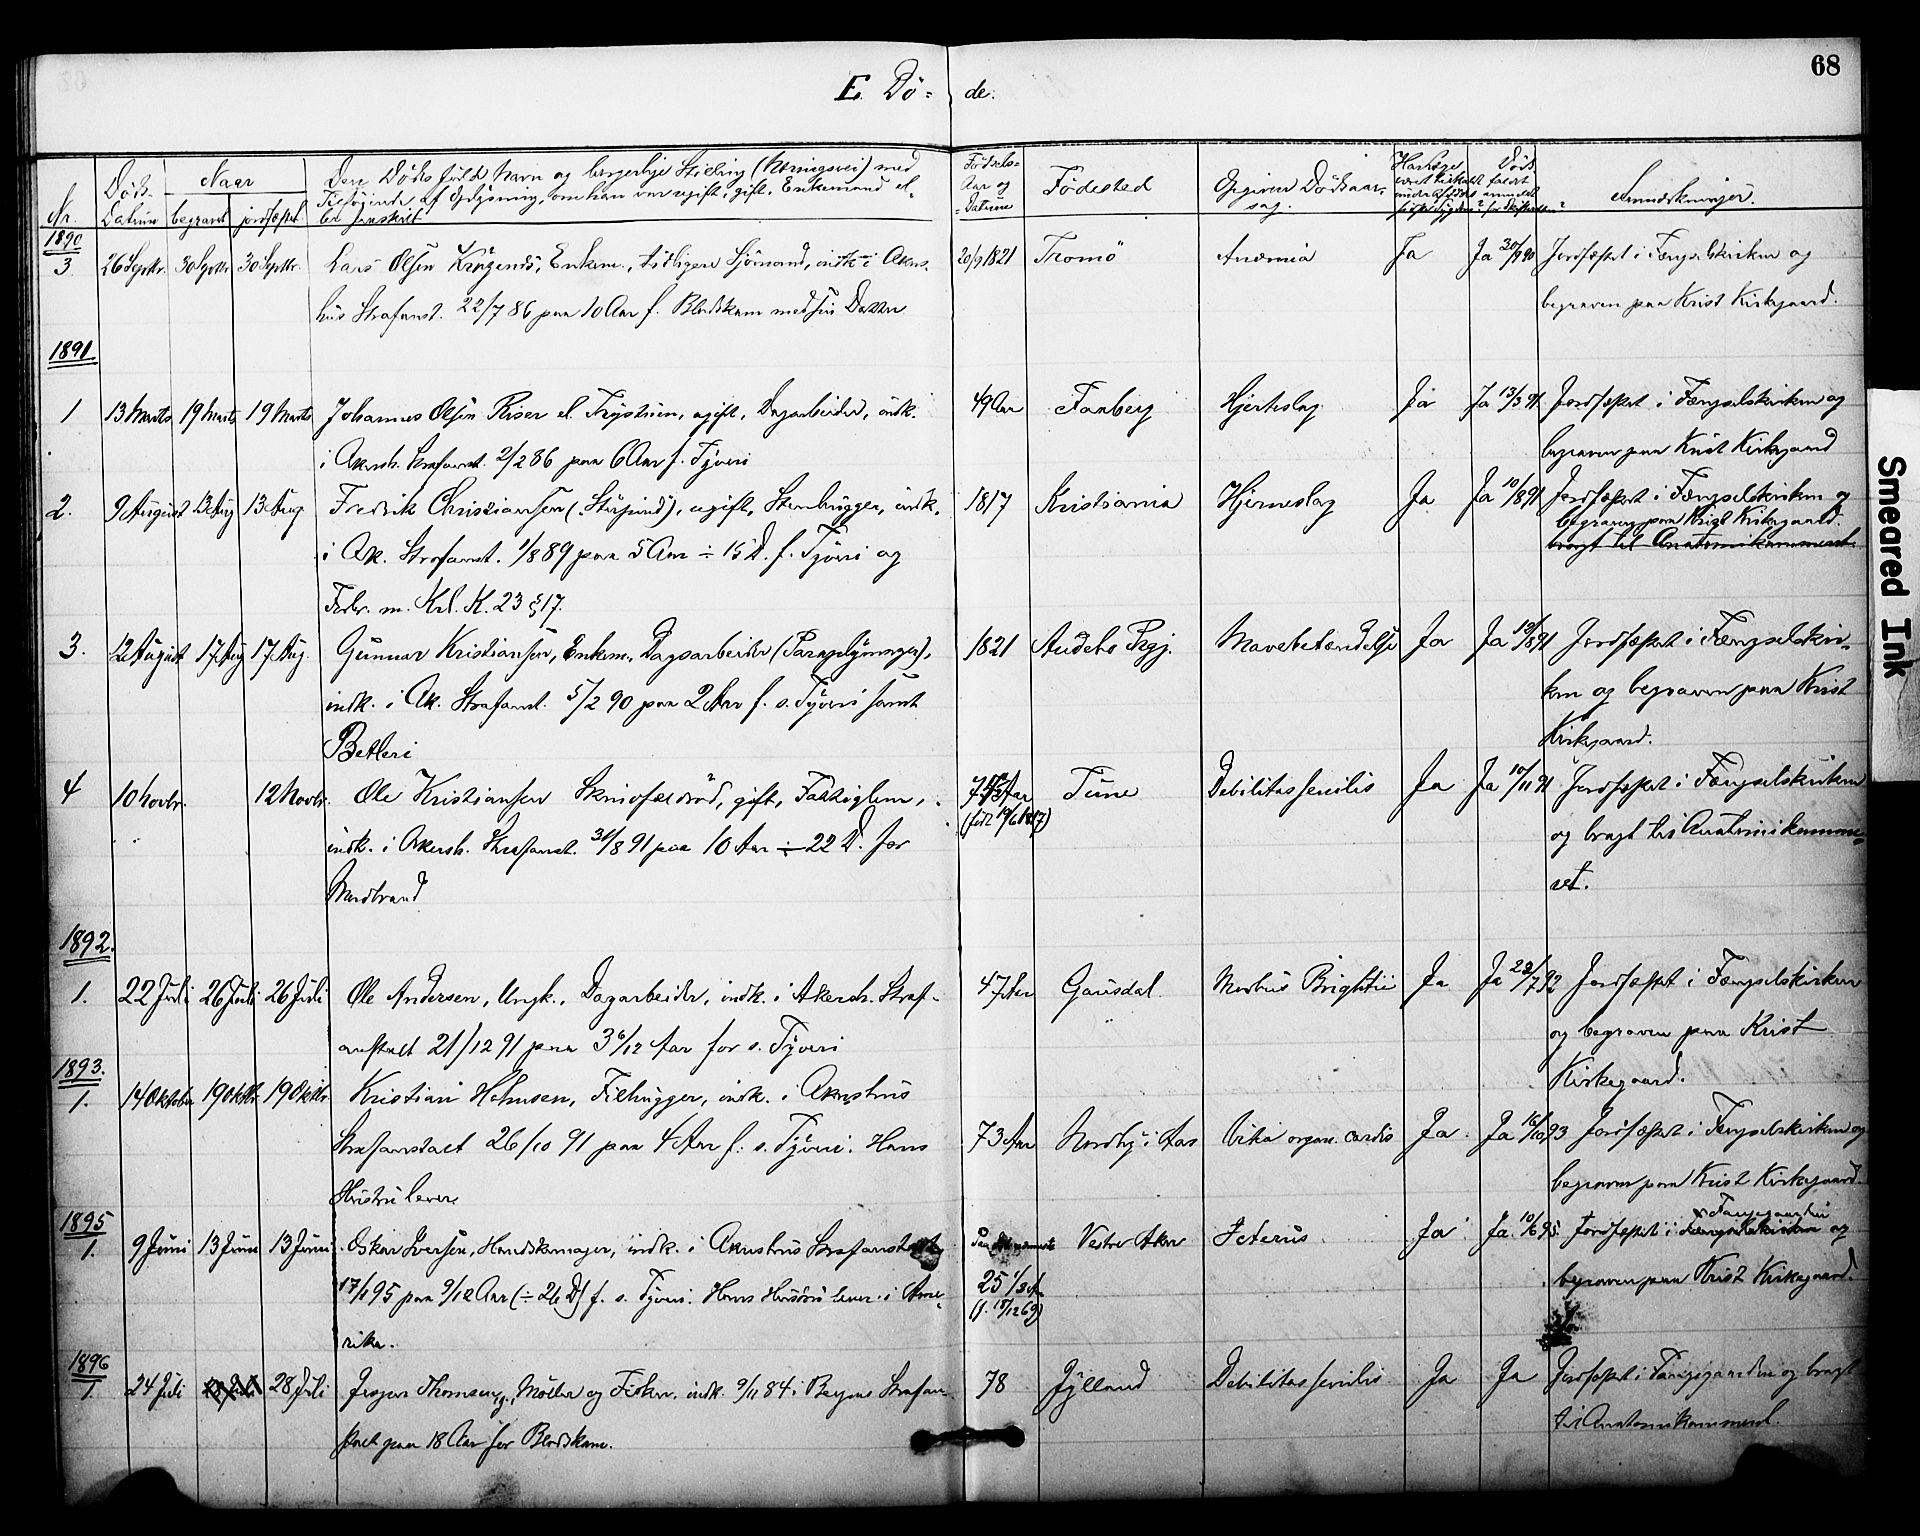 68
E. Dö- de.
Nr. Döds- Datum Naar begravet jordfæstet Den Dödes fulde Navn og borgerlige Stilling (Næringsvei) med Tilföiende af Oplysning, om han var ugift, gift, Enkemand el- ler fraskilt Födsels- Aar og Datum Födested Opgiven Dödsaar- sag. Anmærkninger.
1890
3 26 Septbr. 30 Septbr 30 Septbr. Lars Olsen Krögenes, Enkem., tidligere Sjömand, indk. i Akers- 20/9 1821 Tromö Anæmia Ja Ja 30/9 90 Jordfæstet i Fængselskirken og
hus Strafanst. 22/7 86 paa 10 Aar f. Blodskam med sin Datter begraven paa Krist Kirkegaard.
1891
1 13 Marts 19 Marts 19 Marts Johannes Olsen Riser el. Trystuen, ugift, Dagarbeider, indk. 49 Aar Faaberg Hjerteslag Ja Ja 13/3 91 Jordfæstet i Fængselskirken og
i Akersh. Strafanst. 2/2 86 paa 6 Aar f. Tyveri begraven paa Krist Kirkegaard
2. 9 August 13 Aug 13 Aug. Fredrik Christiansen ugift, Stenhugger, indk. 1817 Kristiania Hjerneslag Ja Ja 10/8 91 Jordfæstet i Fængselskirken og
begraven paa Krist Kirkegaard.
i Ak. Strafanst. 1/8 89 paa 5 Aar ÷ 15 D. f. Tyveri og bragt til Anatomikammeret.
Forbr. m. Krl. K. 23 § 17.
3. 12 August 17 Aug 17 Aug. Gunnar Kristiansen, Enkem., Dagsarbeider 1821 Audebo Prgj. Mavebetændelse Ja Ja 13/8 91 Jordfæstet i Fængselskir-
indk. i Ak. Strafanst. 5/2 90 paa 2 Aar f. s. Tyveri samt ken og begraven paa Krist
Betleri Kirkegaard.
4 10 Novbr. 12 Novbr. Ole Kristiansen gift, Fattiglem, Aar Tune Debilitas senilis Ja Ja 10/11 91 Jordfæstet i Fængselskirken
indk. i Akersh. Strafanst. 31/8 91 paa 10 Aar ÷ 22 D. for og bragt til Anatomikamme-
Mordbrand ret.
1892.
1. 22 Juli 26 Juli 26 Juli Ole Andersen, Ungk., Dagarbeider, indk. i Akersh. Straf- 47 Aar Gausdal Morbus Brightii Ja Ja 23/7 92 Jordfæstet i Fængselskirken
anstalt 21/12 91 paa 3 6/12 Aar for s. Tyveri og begraven paa Krist
Kirkegaard.
1893.
1. 14 Oktober 19 Oktbr. 19 Oktbr. Kristian Holmsen, Filhugger, indk. i Akershus
Strafanstalt 26/10 91 paa 4 Aar f. s. Tyveri. Hans 73 Aar Nordby i Aas Vitia organ. cordis Ja Ja 16/10 93 Jordfæstet i Fængselskirken og
Hustru lever. begraven paa Krist Kirkegaard.
1895
1. 9 Juni 13 Juni 13 Juni Oskar Iversen, Handskemager, indk. i Akershus Strafanstalt Vestre Aker Icterus Ja Ja 10/6 95. Jordfæstet i Fængselskirken Fangegaarden og
17/1 95 paa 9/12 Aar (÷ 26 D) f. s. Tyveri. Hans Hustru lever i Ame- 25 1/2 Aar begraven paa Krist Kirkegaard.
rika. (f. 18/12 69)
1896
1. 24 Juli 28 Juli Jesper Thomsen, g., Möller og Fisker, indk. 9/11 84 i Bergens Strafan- 78 Jylland Debilitas senilis Ja Ja Jordfæstet i Fangegaarden og bragt
stalt paa 18 Aar for Blodskam. til Anatomikammeret.
Smeared Ink